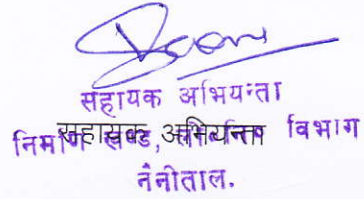 सहायक अभियन्ता
निर्माण खण्ड, विभाग
सहायक अभियन्ता
नैनीताल.